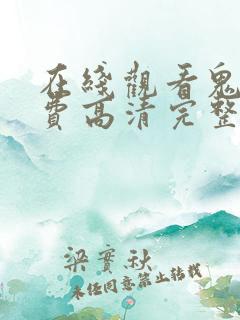 在綫觀看鬼
費高清完整
梁實秋
未经同意禁止转载